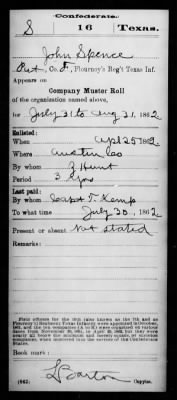 Confederate.
S 16 Texas.
John Spence
Pvt, Co. F, Flournoy's Reg't Texas Inf.
Appears on
Company Muster Roll
of the organization named above,
for July 31 to Aug 31, 1862
Enlisted:
When Apl 25 1862
Where Austin Co
By whom Z Hunt
Period 3 yrs
Last paid:
By whom Capt T. Kemp
To what time July 30, 1862
Present or absent Not stated
Remarks:
Book mark:
(642) L Barton
Copyist.